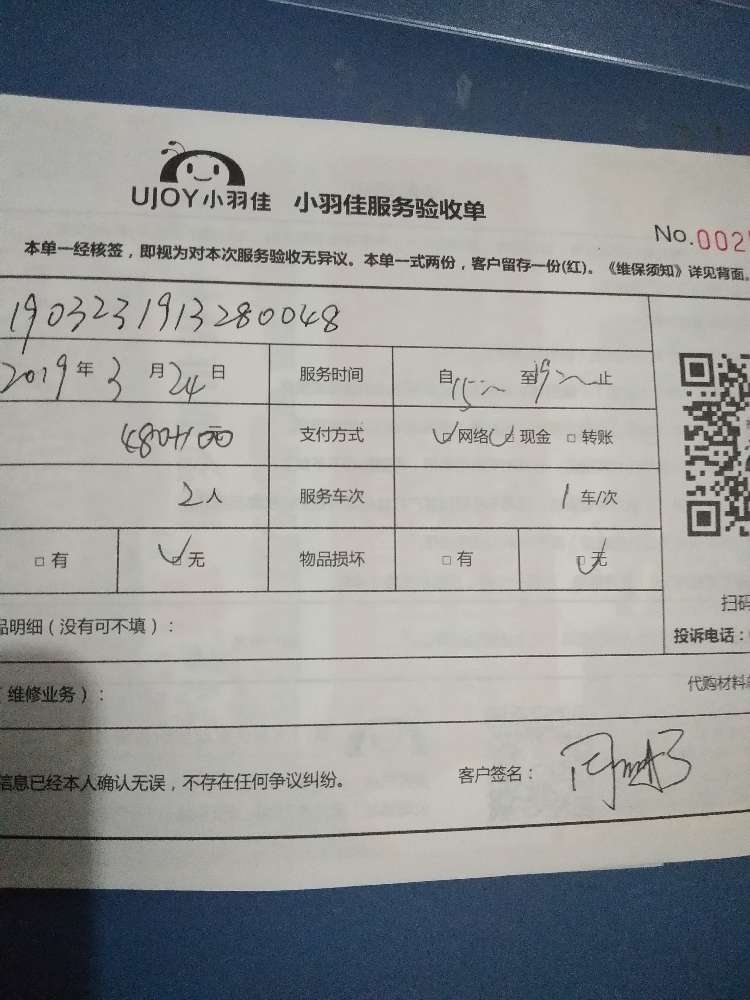 UJOY小羽佳 小羽佳服务验收单
No.002
本单一经核签，即视为对本次服务验收无异议。本单一式两份，客户留存一份(红)。《维保须知》详见背面。
1903231913280048
2019年3月24日 服务时间 自15 至19 止
480+100 支付方式 网络 现金 □转账
2人 服务车次 1车/次
□有 无 物品损坏 □有 无
扫码
品明细（没有可不填）：
投诉电话：
维修业务）：
代购材料
信息已经本人确认无误，不存在任何争议纠纷。 客户签名：